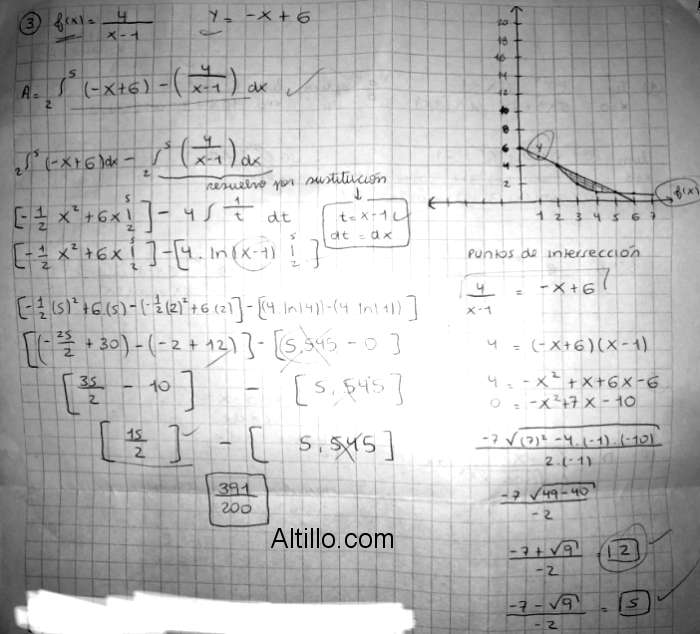 ③ f(x) = 4/(x-1)   y = -x + 6
A = ₂∫⁵ (-x+6) - (4/(x-1)) dx ✓
₂∫⁵ (-x+6) dx - ₂∫⁵ (4/(x-1)) dx
resuelvo por sustitución
[-1/2 x² + 6x |⁵₂] - 4 ∫ 1/t dt
t = x-1
dt = dx
[-1/2 x² + 6x |⁵₂] - [4. ln(x-1) |⁵₂]
[-1/2 (5)² + 6.(5) - (-1/2 (2)² + 6(2)] - [(4. ln(4)) - (4 ln(1))]
[(-25/2 + 30) - (-2 + 12)] - [5,545 - 0]
[35/2 - 10] - [5,545]
[15/2] - [5,545]
391/200
20
18
16
14
12
10
8
6
4
2
1 2 3 4 5 6 7
y
f(x)
Puntos de intersección
4/(x-1) = -x+6
4 = (-x+6)(x-1)
4 = -x² + x + 6x - 6
0 = -x² + 7x - 10
-7 √((7)² - 4.(-1).(-10)) / 2.(-1)
-7 √(49-40) / -2
(-7 + √9) / -2 = 2 ✓
(-7 - √9) / -2 = 5 ✓
Altillo.com